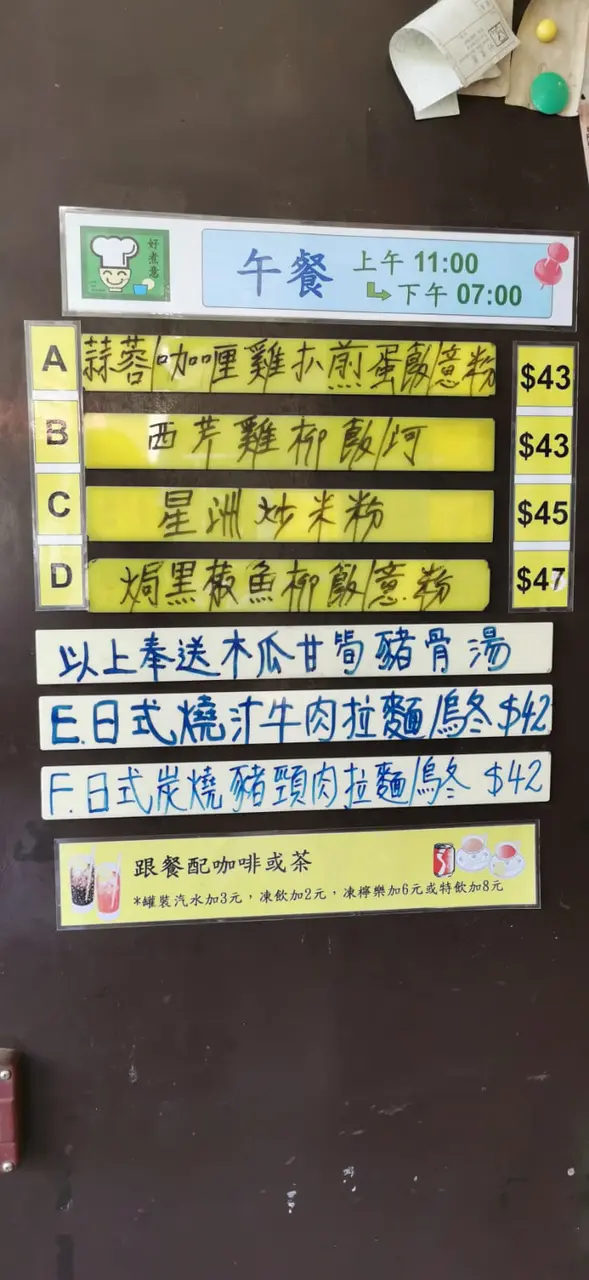 好煮意
午餐
上午 11:00
下午 07:00
A 蒜蓉/咖喱雞扒煎蛋飯/意粉 $43
B 西芹雞柳飯/河 $43
C 星洲炒米粉 $45
D 焗黑椒魚柳飯/意粉 $47
以上奉送木瓜甘筍豬骨湯
E.日式燒汁牛肉拉麵/烏冬 $42
F.日式炭燒豬頸肉拉麵/烏冬 $42
跟餐配咖啡或茶
*罐裝汽水加3元，凍飲加2元，凍檸樂加6元或特飲加8元